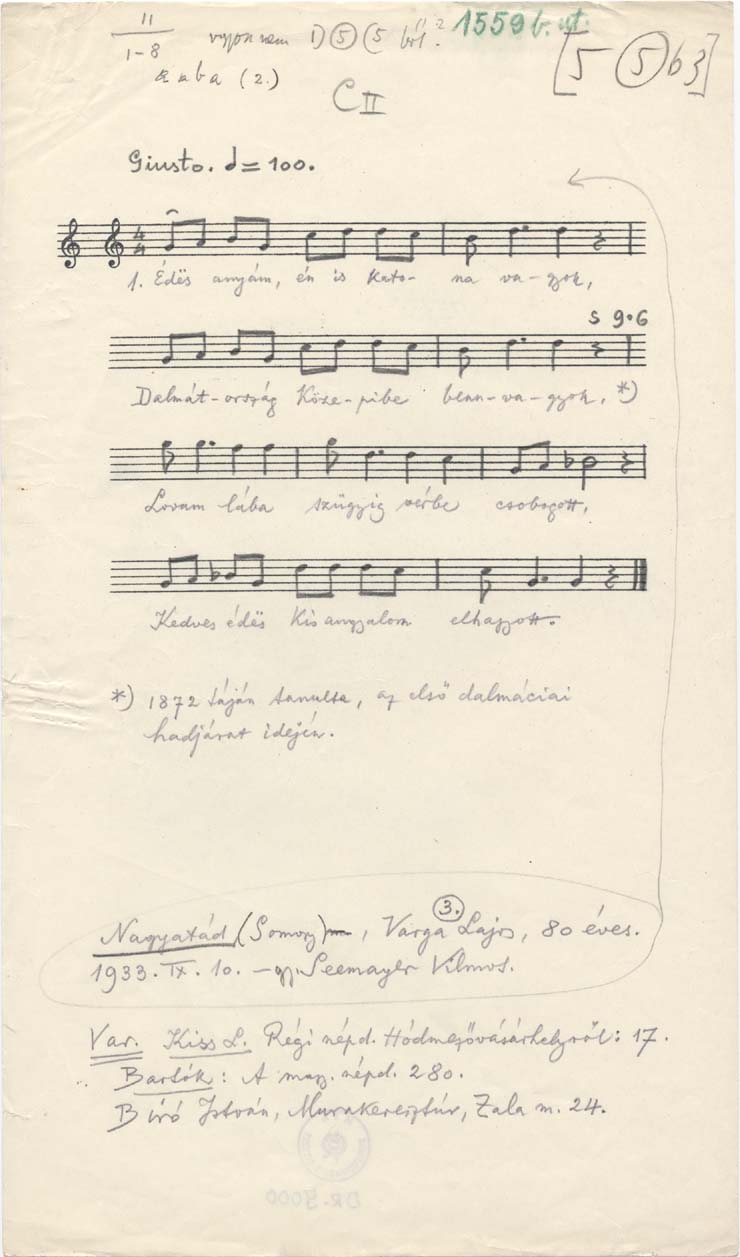 11
1-8
1559 b. ut.
[5 ⑤ b3]
CII
Giusto. = 100.
4
4
1. Édës anyám, én is kato- na va- gyok,
s 9.6
Dalmát-ország Köze-pibe benn-va-gyok, *)
Lovam lába szügyig vérbe csobogott,
Kedves édës kis angyalom elhagyott.
*) 1872 táján tanulta, az első dalmáciai
hadjárat idején.
3.
Nagyatád (Somogy), Varga Lajos, 80 éves.
1933. IX. 10. – gy. Seemayer Vilmos.
Var. Kiss L. Régi népd. Hódmezővásárhelyről: 17.
Bartók: A magy. népd. 280.
Bíró István, Murakeresztúr, Zala m. 24.